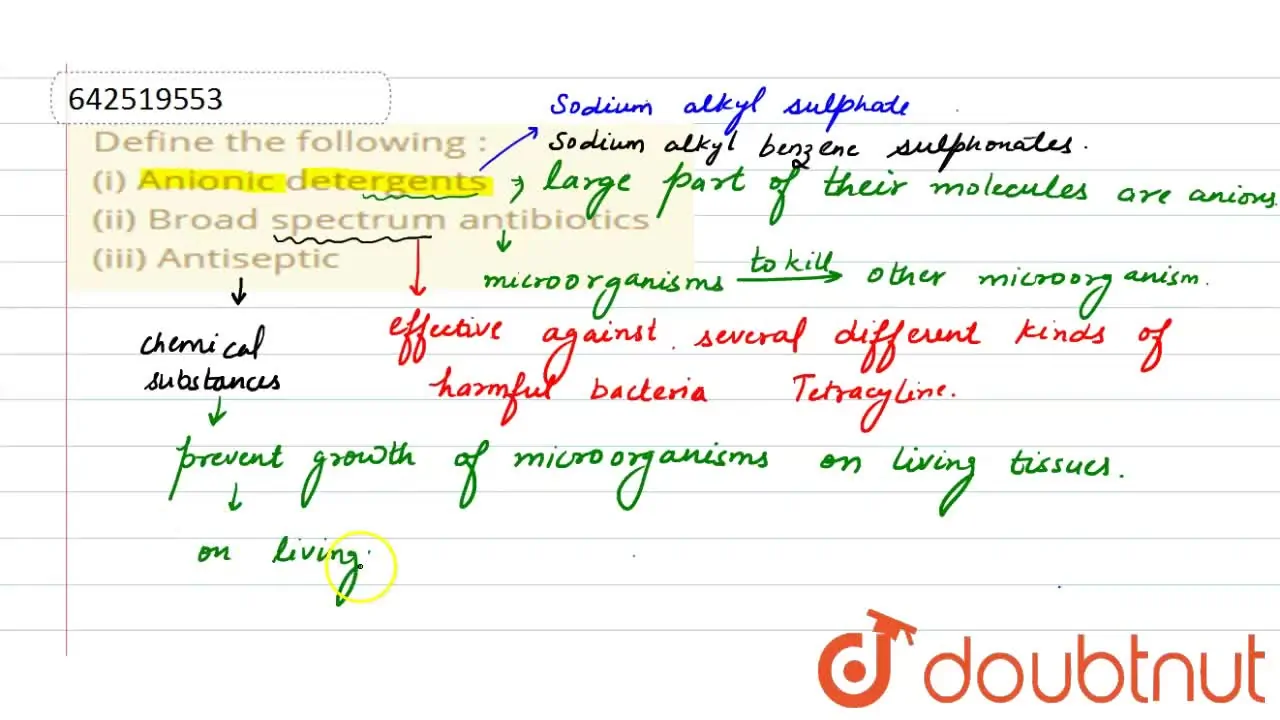 642519553
Sodium alkyl sulphate
Define the following :
Sodium alkyl benzene sulphonates.
(i) Anionic detergents , large part of their molecules are anions.
(ii) Broad spectrum antibiotics
(iii) Antiseptic
microorganisms to kill other microorganism.
chemical
substances
effective against several different kinds of
harmful bacteria Tetracyline.
prevent growth of microorganisms on living tissues.
on living
doubtnut